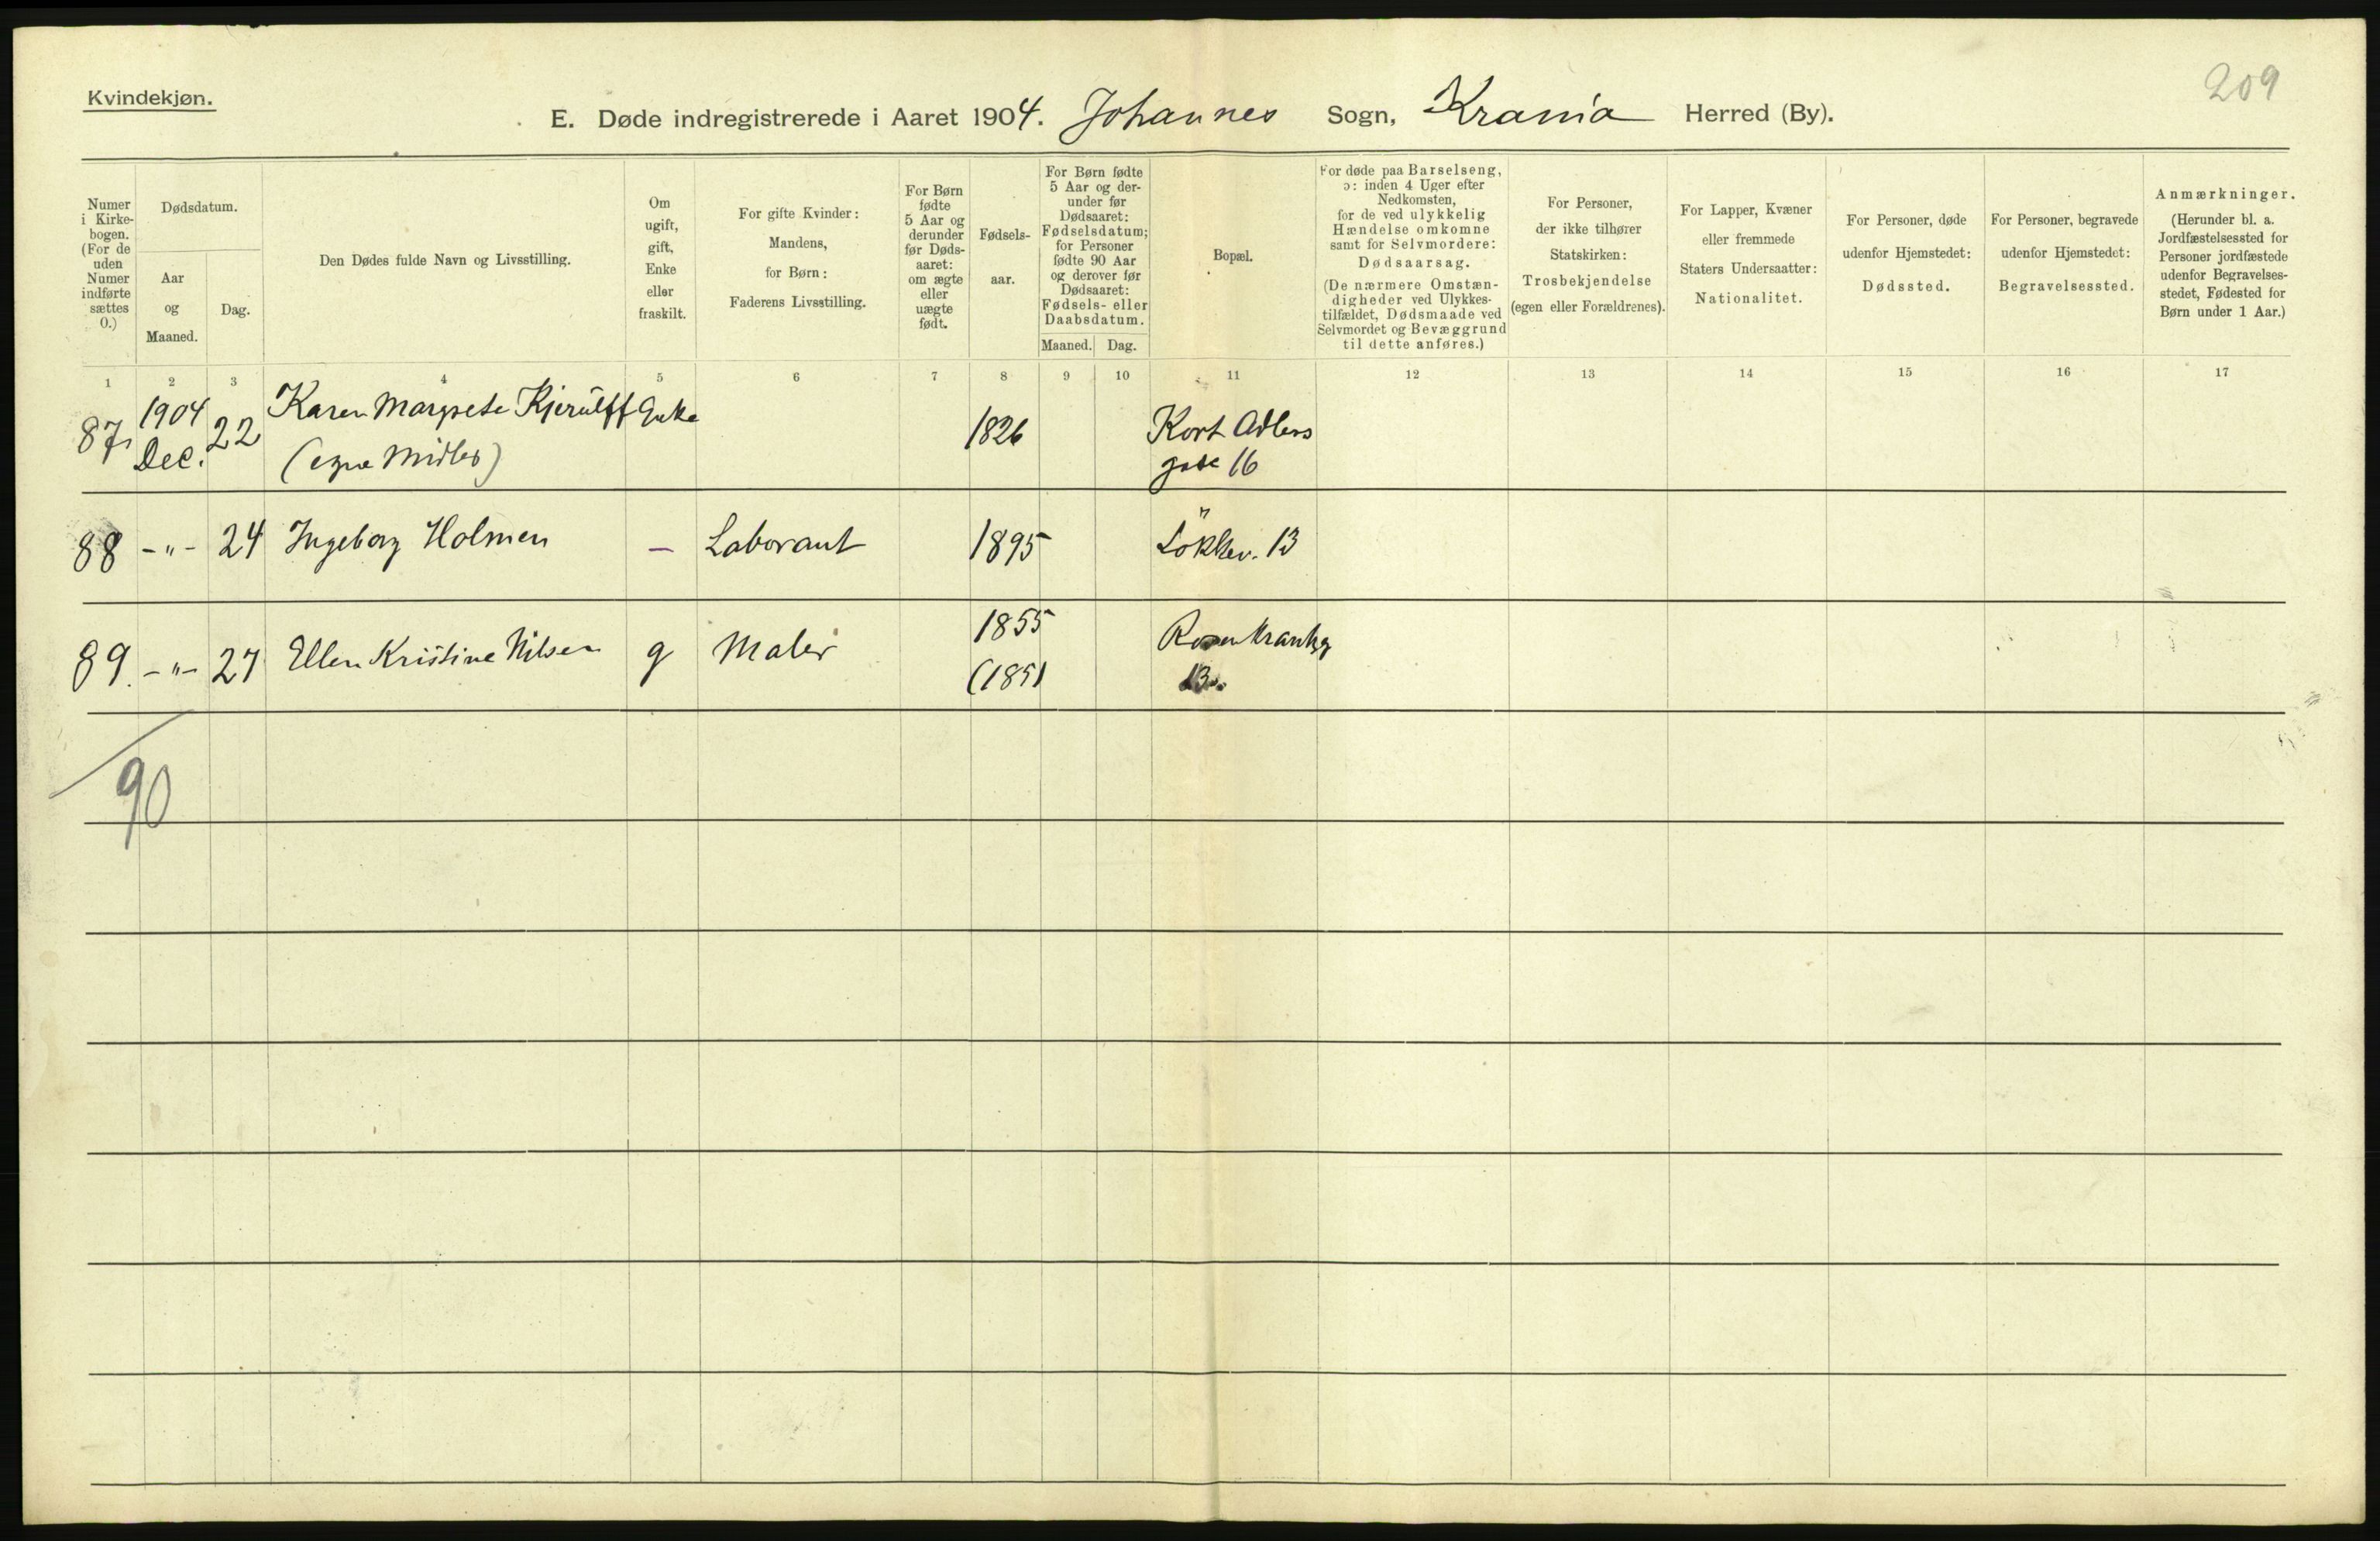 Kvindekjøn.
209
E. Døde indregistrerede i Aaret 1904. Johannes Sogn, Krania Herred (By).
Numer i Kirke-bogen. (For de uden Numer indførte sættes 0.)
Dødsdatum.
Aar og Maaned.
Dag.
Den Dødes fulde Navn og Livsstilling.
Om ugift, gift, Enke eller fraskilt.
For gifte Kvinder: Mandens, for Børn: Faderens Livsstilling.
For Børn fødte 5 Aar og derunder før Døds-aaret: om ægte eller uægte født.
Fødsels-aar.
For Børn fødte 5 Aar og der-under før Dødsaaret: Fødselsdatum; for Personer fødte 90 Aar og derover før Dødsaaret: Fødsels- eller Daabsdatum.
Maaned. Dag.
Bopæl.
For døde paa Barselseng, ɔ: inden 4 Uger efter Nedkomsten, for de ved ulykkelig Hændelse omkomne samt for Selvmordere: Dødsaarsag. (De nærmere Omstæn-digheder ved Ulykkes-tilfældet, Dødsmaade ved Selvmordet og Bevæggrund til dette anføres.)
For Personer, der ikke tilhører Statskirken: Trosbekjendelse (egen eller Forældrenes).
For Lapper, Kvæner eller fremmede Staters Undersaatter: Nationalitet.
For Personer, døde udenfor Hjemstedet: Dødssted.
For Personer, begravede udenfor Hjemstedet: Begravelsessted.
Anmærkninger. (Herunder bl. a. Jordfæstelsessted for Personer jordfæstede udenfor Begravelses-stedet, Fødested for Børn under 1 Aar.)
1 2 3 4 5 6 7 8 9 10 11 12 13 14 15 16 17
87 1904 Dec. 22 Karen Margrete Kjerulff Enke 1826 Kort Adlers
(egne Midler) gade 16
88 -"- 24 Ingeborg Holmen — Laborant 1895 Løkkev. 13
89. -"- 27 Ellen Kristine Nilsen g Maler 1855 Rosenkrantzg
(1851 13
90